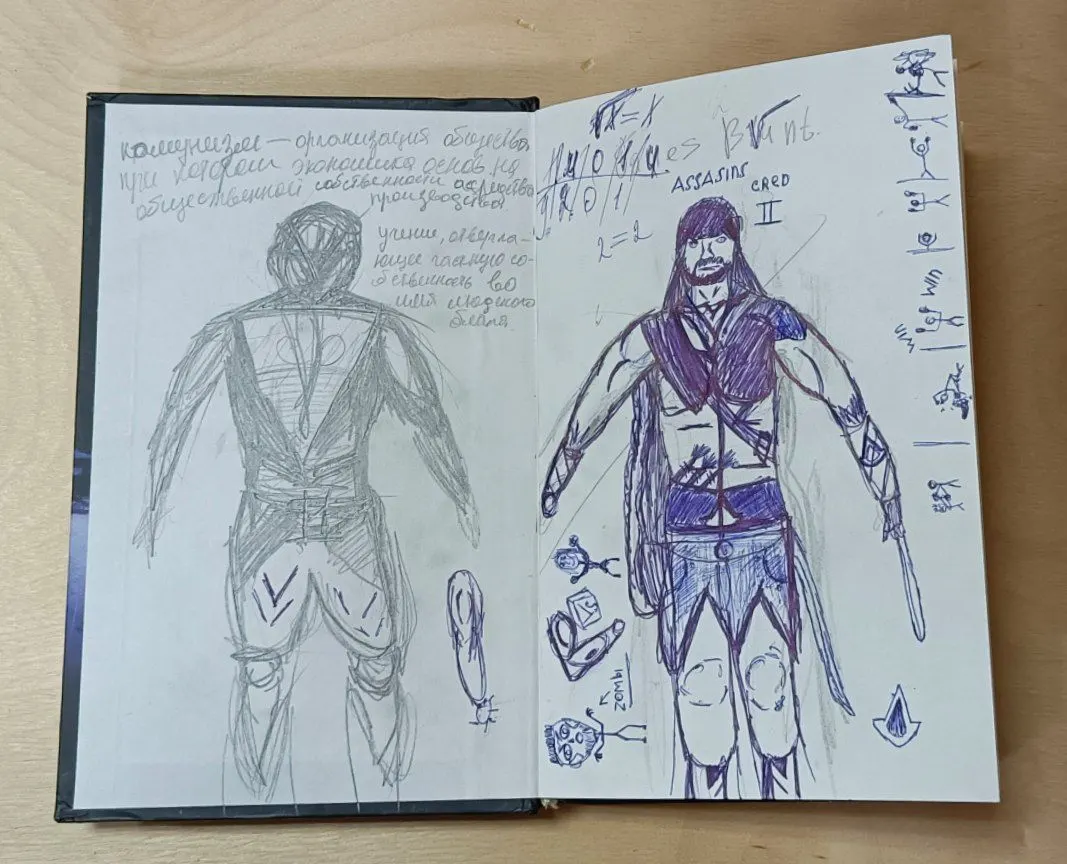 комунизм — организация общества
при котором экономика основ. на
общественной собственности а средства
производства.
учение, отверга-
ющее частную со-
бственность во
имя людского
блага.
√x = x
2 0 1
2=2
ASSASINS
CRED
II
WIN
ZOMBI